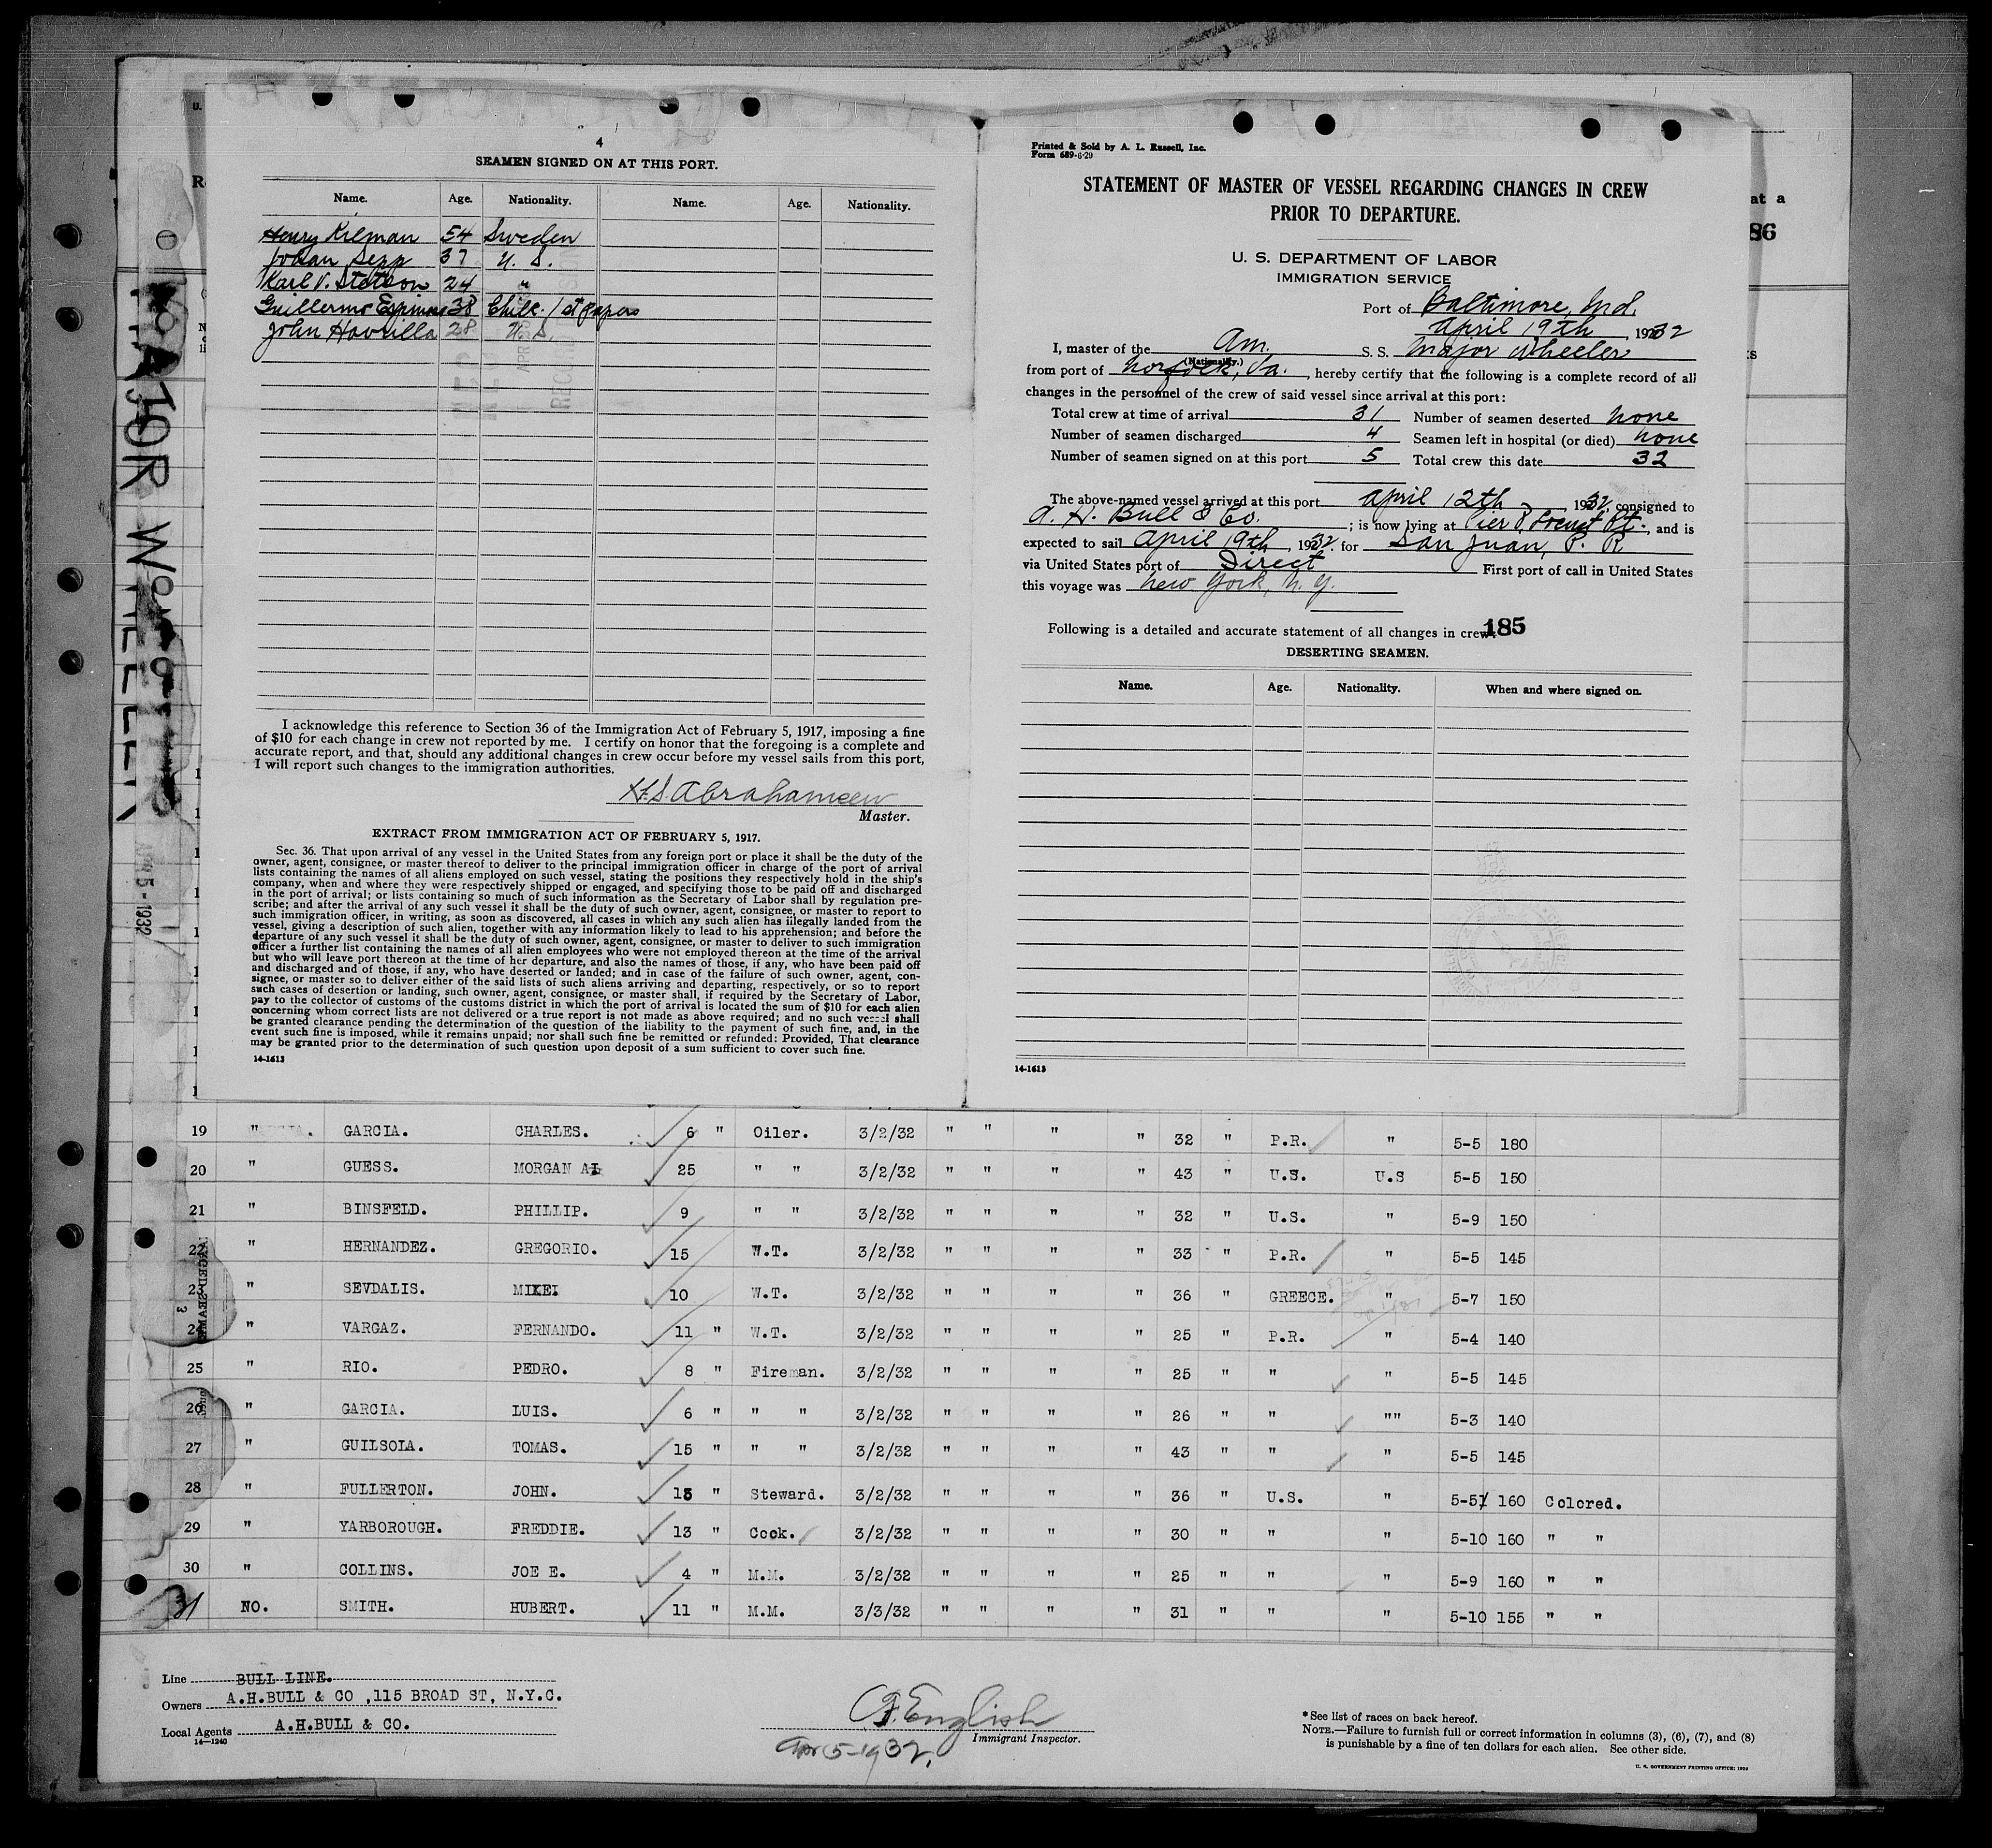 4
SEAMEN SIGNED ON AT THIS PORT.
Name. Age. Nationality. Name. Age. Nationality.
Henry Kilman 54 Sweden
Johan Sepp 37 U. S.
Karl V. Stetson 24 "
Guillermo 38 Chile. 1st papers
John Havrilla 28 U. S.
I acknowledge this reference to Section 36 of the Immigration Act of February 5, 1917, imposing a fine
of $10 for each change in crew not reported by me. I certify on honor that the foregoing is a complete and
accurate report, and that, should any additional changes in crew occur before my vessel sails from this port,
I will report such changes to the immigration authorities.
Master.
EXTRACT FROM IMMIGRATION ACT OF FEBRUARY 5, 1917.
Sec. 36. That upon arrival of any vessel in the United States from any foreign port or place it shall be the duty of the
owner, agent, consignee, or master thereof to deliver to the principal immigration officer in charge of the port of arrival
lists containing the names of all aliens employed on such vessel, stating the positions they respectively hold in the ship's
company, when and where they were respectively shipped or engaged, and specifying those to be paid off and discharged
in the port of arrival; or lists containing so much of such information as the Secretary of Labor shall by regulation pre-
scribe; and after the arrival of any such vessel it shall be the duty of such owner, agent, consignee, or master to report to
such immigration officer, in writing, as soon as discovered, all cases in which any such alien has illegally landed from the
vessel, giving a description of such alien, together with any information likely to lead to his apprehension; and before the
departure of any such vessel it shall be the duty of such owner, agent, consignee, or master to deliver to such immigration
officer a further list containing the names of all alien employees who were not employed thereon at the time of the arrival
but who will leave port thereon at the time of her departure, and also the names of those, if any, who have been paid off
and discharged and of those, if any, who have deserted or landed; and in case of the failure of such owner, agent, con-
signee, or master so to deliver either of the said lists of such aliens arriving and departing, respectively, or so to report
such cases of desertion or landing, such owner, agent, consignee, or master shall, if required by the Secretary of Labor,
pay to the collector of customs of the customs district in which the port of arrival is located the sum of $10 for each alien
concerning whom correct lists are not delivered or a true report is not made as above required; and no such vessel shall
be granted clearance pending the determination of the question of the liability to the payment of such fine, and, in the
event such fine is imposed, while it remains unpaid; nor shall such fine be remitted or refunded: Provided, That clearance
may be granted prior to the determination of such question upon deposit of a sum sufficient to cover such fine.
14-1613
Printed & Sold by A. L. Russell, Inc.
Form 689-6-29
STATEMENT OF MASTER OF VESSEL REGARDING CHANGES IN CREW
PRIOR TO DEPARTURE.
U. S. DEPARTMENT OF LABOR
IMMIGRATION SERVICE
Port of Baltimore, Md.
April 19th, 1932
I, master of the Am. S. S. Major Wheeler
(Nationality.)
from port of Norfolk, Va., hereby certify that the following is a complete record of all
changes in the personnel of the crew of said vessel since arrival at this port:
Total crew at time of arrival 31 Number of seamen deserted none
Number of seamen discharged 4 Seamen left in hospital (or died) none
Number of seamen signed on at this port 5 Total crew this date 32
The above-named vessel arrived at this port April 12th, 1932, consigned to
A. H. Bull & Co.; is now lying at Pier Locust Pt., and is
expected to sail April 19th, 1932. for San Juan, P. R.
via United States port of Direct First port of call in United States
this voyage was New York, N. Y.
Following is a detailed and accurate statement of all changes in crew: 185
DESERTING SEAMEN.
Name. Age. Nationality. When and where signed on.
14-1613
at a
86
MAJOR WHEELER
APR 5-1932
19 " GARCIA. CHARLES. 6 " Oiler. 3/2/32 " " " " 32 " P.R. " 5-5 180
20 " GUESS. MORGAN A 25 " " 3/2/32 " " " " 43 " U.S. U.S 5-5 150
21 " BINSFELD. PHILLIP. 9 " " 3/2/32 " " " " 32 " U.S. " 5-9 150
22 " HERNANDEZ. GREGORIO. 15 W.T. 3/2/32 " " " " 33 " P.R. " 5-5 145
23 " SEVDALIS. MIKE 10 W.T. 3/2/32 " " " " 36 " GREECE. " 5-7 150
24 " VARGAZ. FERNANDO. 11 " W.T. 3/2/32 " " " " 25 " P.R. " 5-4 140
25 " RIO. PEDRO. 8 " Fireman. 3/2/32 " " " " 25 " " " 5-5 145
26 " GARCIA. LUIS. 6 " " " 3/2/32 " " " " 26 " " "" 5-3 140
27 " GUILSOIA. TOMAS. 15 " " " 3/2/32 " " " " 43 " " " 5-5 145
28 " FULLERTON. JOHN. 15 " Steward. 3/2/32 " " " " 36 " U.S. " 5-5 160 Colored.
29 " YARBOROUGH. FREDDIE. 13 " Cook. 3/2/32 " " " " 30 " " " 5-10 160 " "
30 " COLLINS. JOE E. 4 " M.M. 3/2/32 " " " " 25 " " " 5-9 160 " "
31 NO. SMITH. HUBERT. 11 " M.M. 3/3/32 " " " " 31 " " " 5-10 155 " "
Line BULL LINE.
Owners A.H.BULL & CO ,115 BROAD ST, N.Y.C.
Local Agents A.H.BULL & CO.
14-1240
English
Immigrant Inspector.
Apr 5-1932.
* See list of races on back hereof.
NOTE.—Failure to furnish full or correct information in columns (3), (6), (7), and (8)
is punishable by a fine of ten dollars for each alien. See other side.
U. S. GOVERNMENT PRINTING OFFICE: 1929